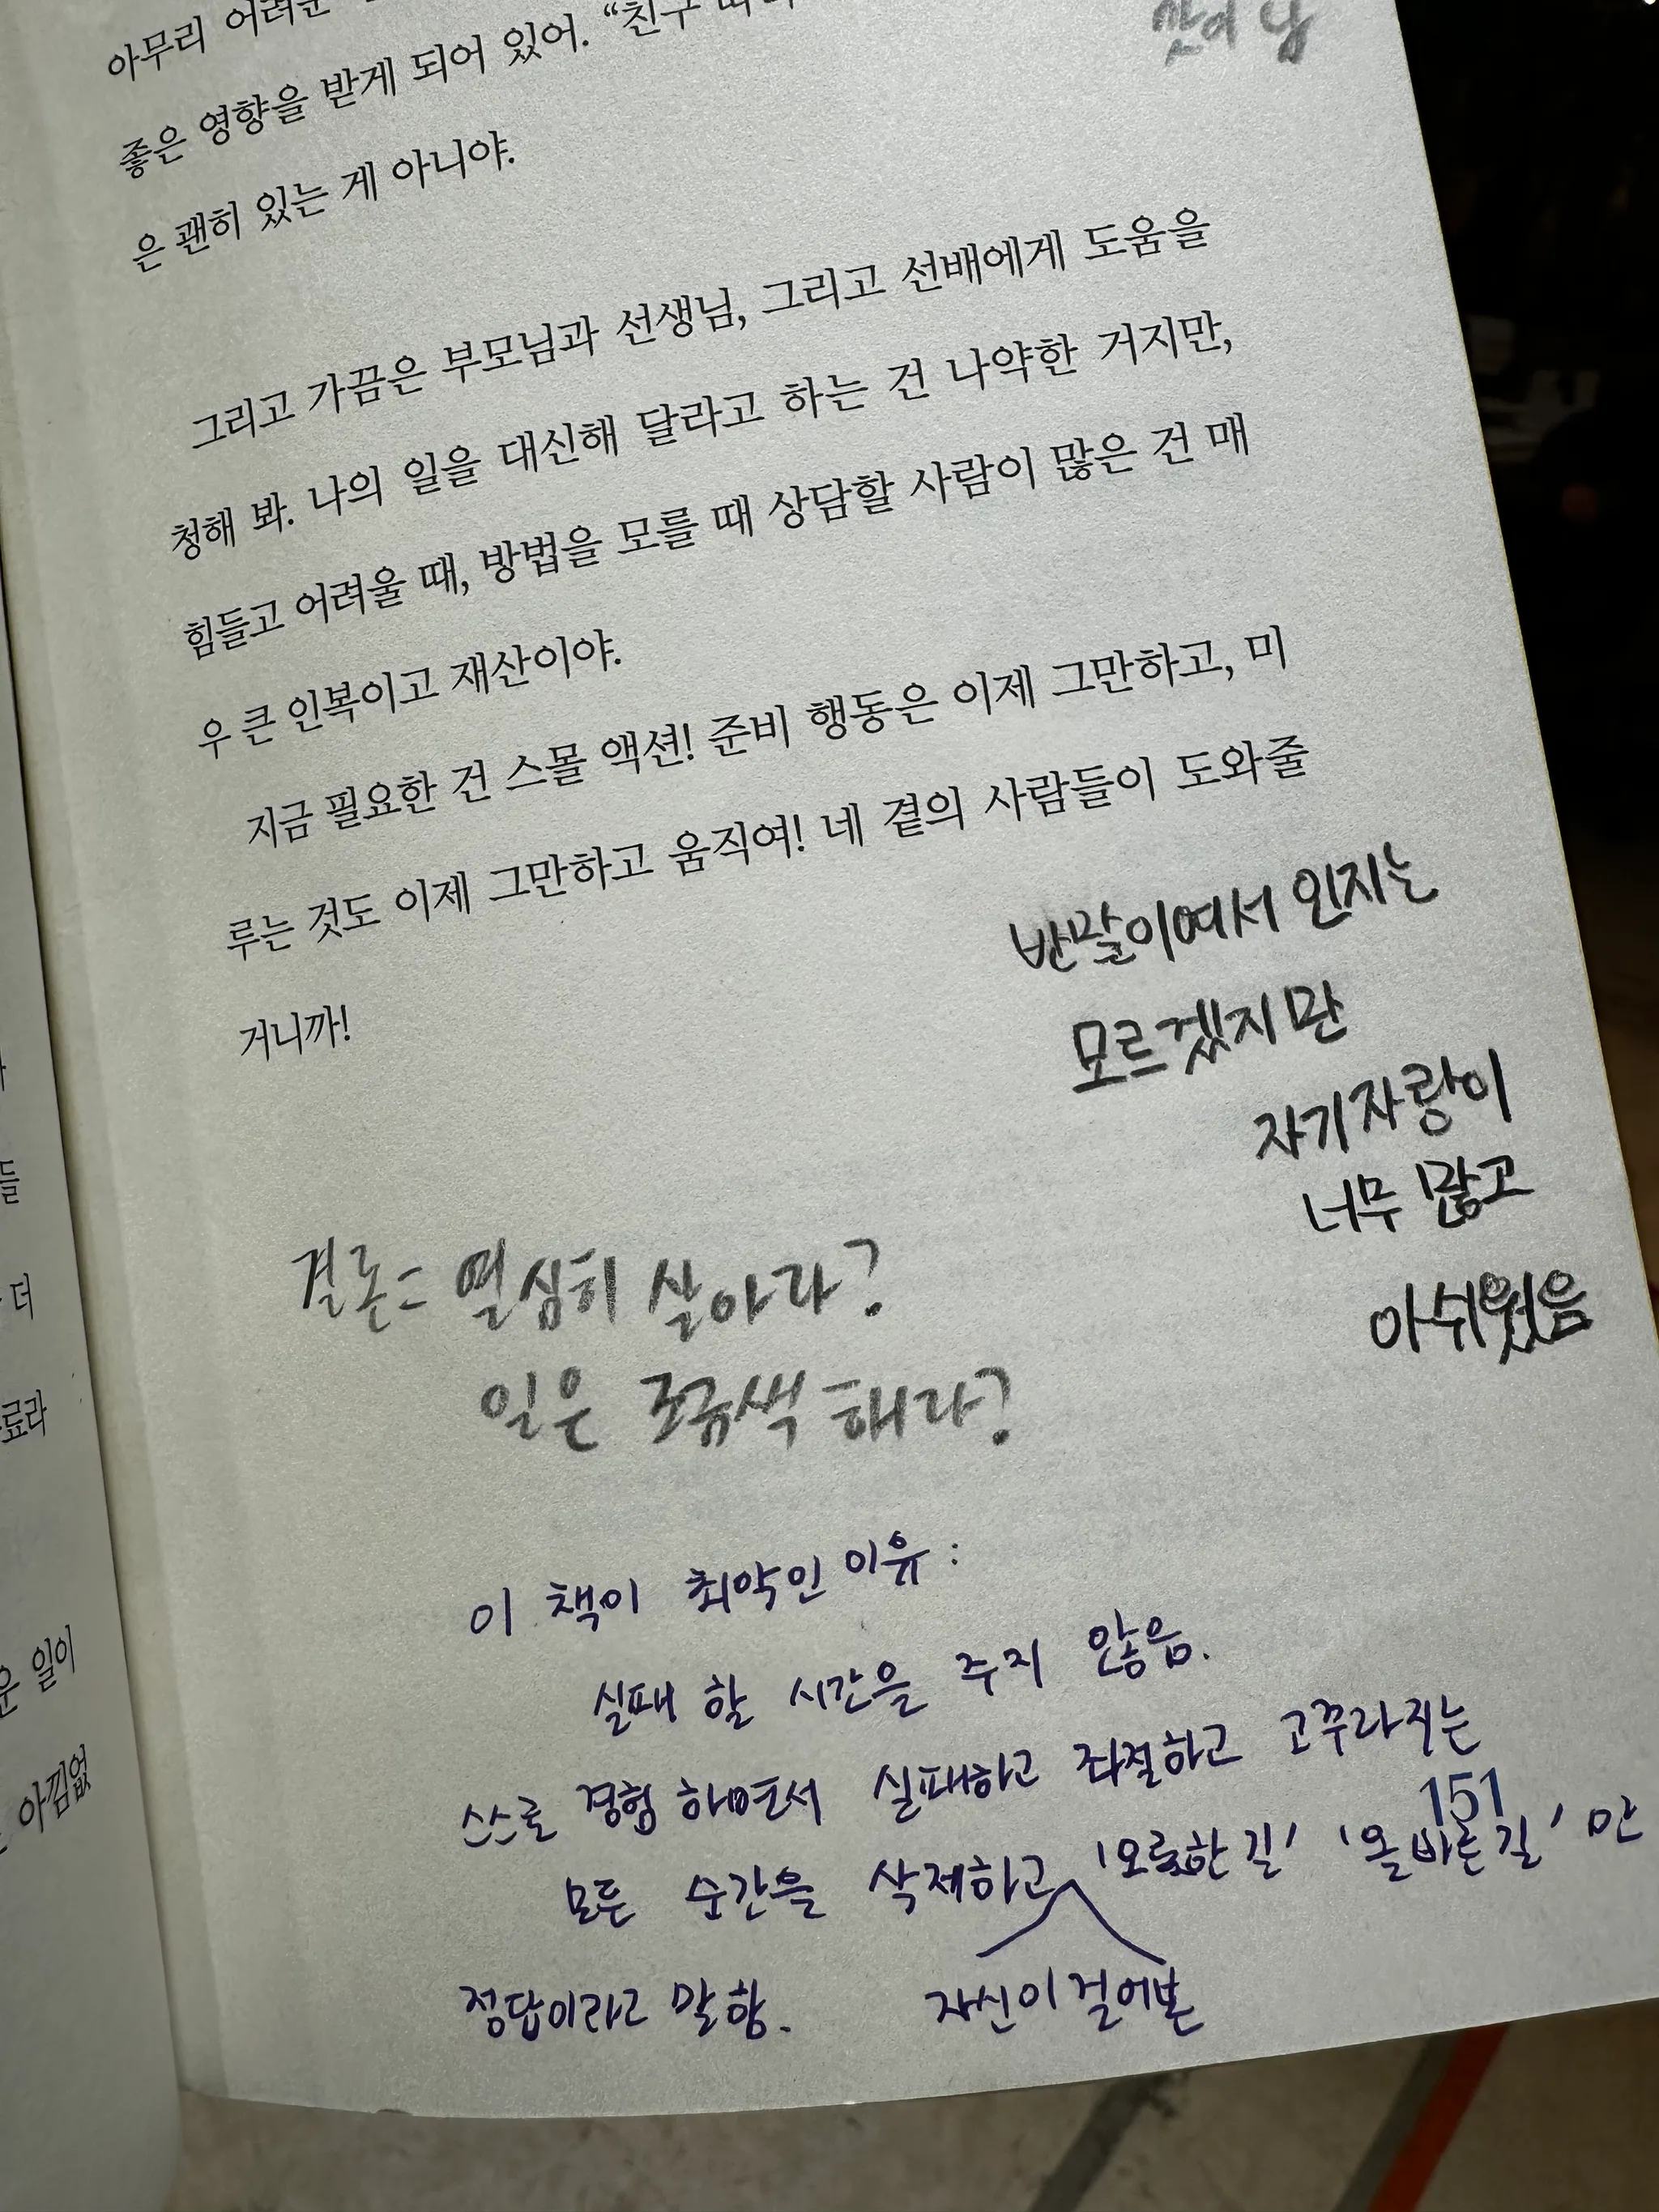 아무리 어려운
좋은 영향을 받게 되어 있어. “친구 따라
은 괜히 있는 게 아니야.
그리고 가끔은 부모님과 선생님, 그리고 선배에게 도움을
청해 봐. 나의 일을 대신해 달라고 하는 건 나약한 거지만,
힘들고 어려울 때, 방법을 모를 때 상담할 사람이 많은 건 매
우 큰 인복이고 재산이야.
지금 필요한 건 스몰 액션! 준비 행동은 이제 그만하고, 미
루는 것도 이제 그만하고 움직여! 네 곁의 사람들이 도와줄
거니까!
반말이여서 인지는
모르겠지만
자기자랑이
너무 많고
아쉬웠음
결론은 열심히 살아라?
일은 해라?
이 책이 최악인 이유 :
실패 할 시간을 주지 않음.
스스로 경험 하면서 실패하고 좌절하고 고꾸라지는
151
모든 순간을 삭제하고 '오롯한 길' '올바른 길' 만
자신이 걸어본
정답이라고 말함.
들
더
료라
운 일이
아낌없